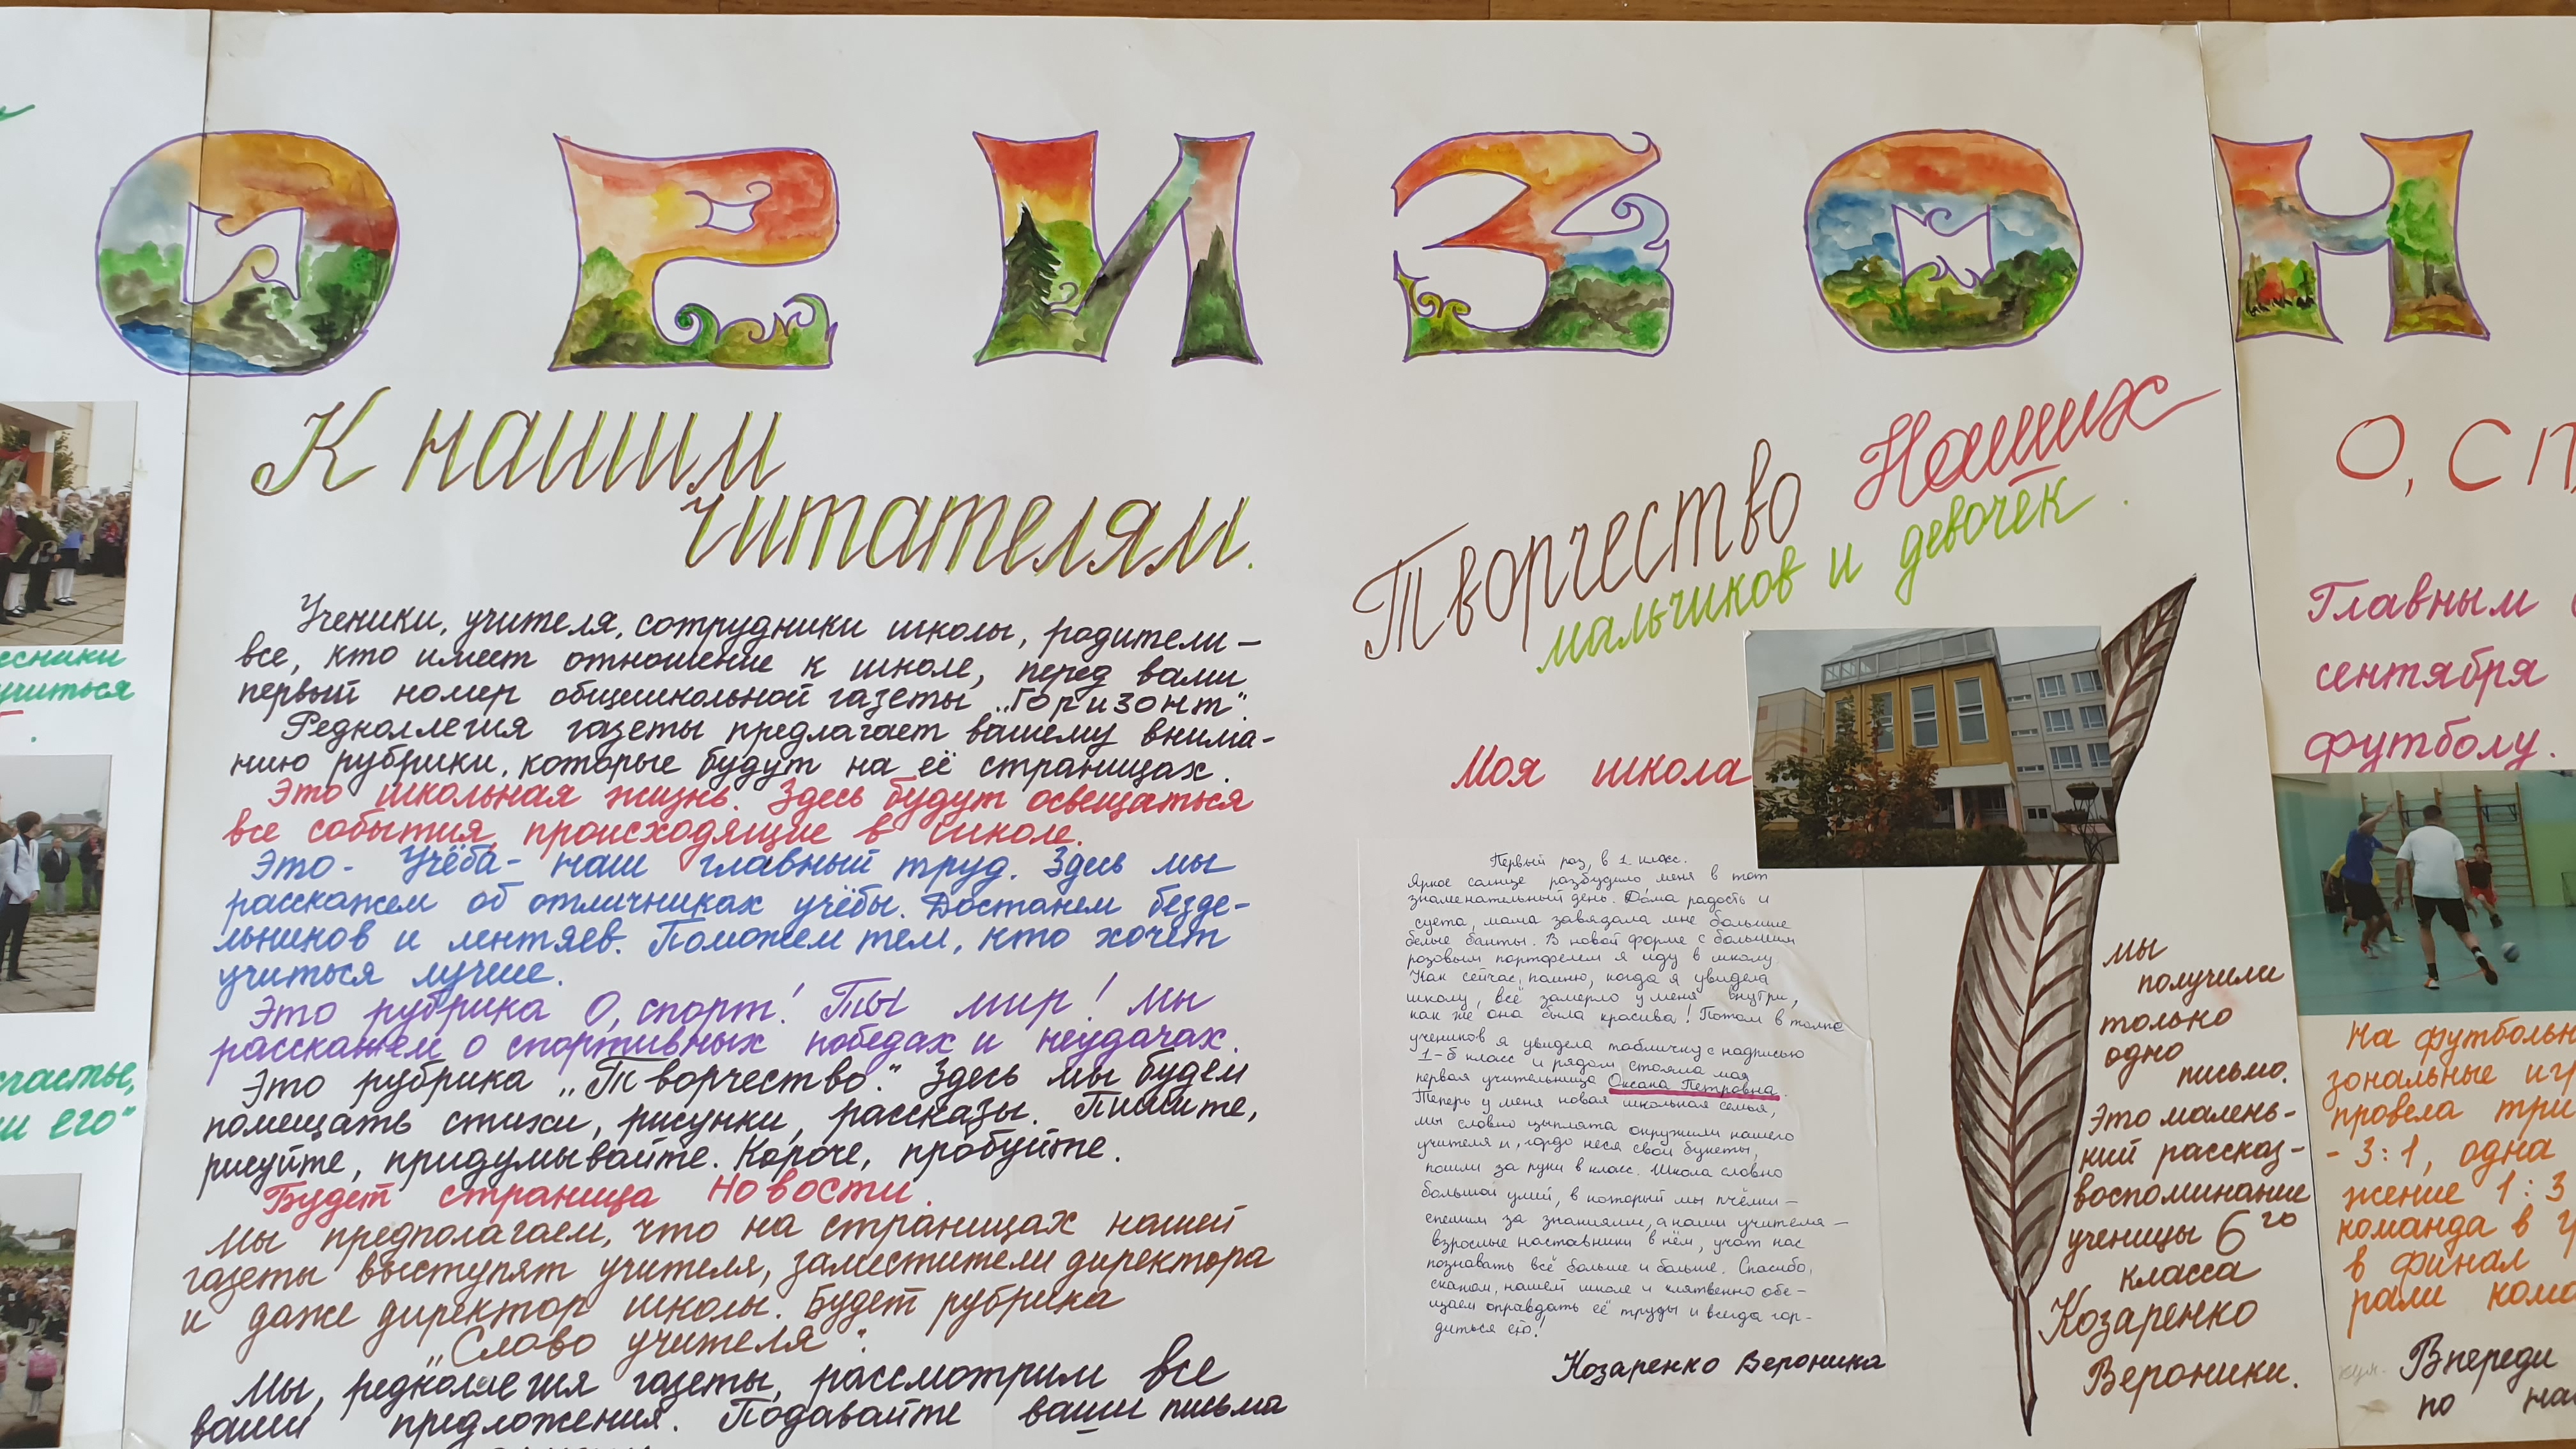 ОРИЗОН
есники
учиться
счастье,
и его"
К нашим
читателям.
Ученики, учителя, сотрудники школы, родители –
все, кто имеет отношение к школе, перед вами
первый номер общешкольной газеты „Горизонт".
Редколлегия газеты предлагает вашему внима-
нию рубрики, которые будут на её страницах.
Это школьная жизнь. Здесь будут освещаться
все события, происходящие в школе.
Это - Учёба - наш главный труд. Здесь мы
расскажем об отличниках учёбы. Достанем безде-
льников и лентяев. Поможем тем, кто хочет
учиться лучше.
Это рубрика О, спорт! Ты мир! Мы
расскажем о спортивных победах и неудачах.
Это рубрика „Творчество." Здесь мы будем
помещать стихи, рисунки, рассказы. Пишите,
рисуйте, придумывайте. Короче, пробуйте.
Будет страница Новости.
Мы предполагаем, что на страницах нашей
газеты выступят учителя, заместители директора
и даже директор школы. Будет рубрика
„Слово учителя".
Мы, редколлегия газеты, рассмотрим все
ваши предложения. Подавайте ваши письма
Творчество Наших
мальчиков и девочек.
Моя школа
Первый раз, в 1 класс.
Яркое солнце разбудило меня в тот
знаменательный день. Дома радость и
суета, мама завядала мне большие
белые банты. В новой форме с большим
розовым портфелем я иду в школу.
Как сейчас, помню, когда я увидела
школу, всё замерло у меня внутри,
как же она была красива! Потом в толпе
учеников я увидела табличку с надписью
1-б класс и рядом стояла моя
первая учительница Оксана Петровна.
Теперь у меня новая школьная семья,
мы словно цыплята окружили нашего
учителя и, гордо неся свои букеты,
пошли за руки в класс. Школа словно
большой улий, в который мы пчёлки –
спешим за знаниями, а наши учителя –
взрослые наставники в нём, учат нас
познавать всё больше и больше. Спасибо,
скажем, нашей школе и клятвенно обе-
щаем оправдать её труды и всегда гор-
диться ею!
Козаренко Вероника
мы
получили
только
одно
письмо.
Это малень-
кий рассказ-
воспоминание
ученицы 6го
класса
Козаренко
Вероники.
О, СП
Главным
сентября
футболу.
На футбольн
зональные игр
провела три
- 3:1, одна
жение 1:3
команда в
в финал
рали кома
Впереди
по на